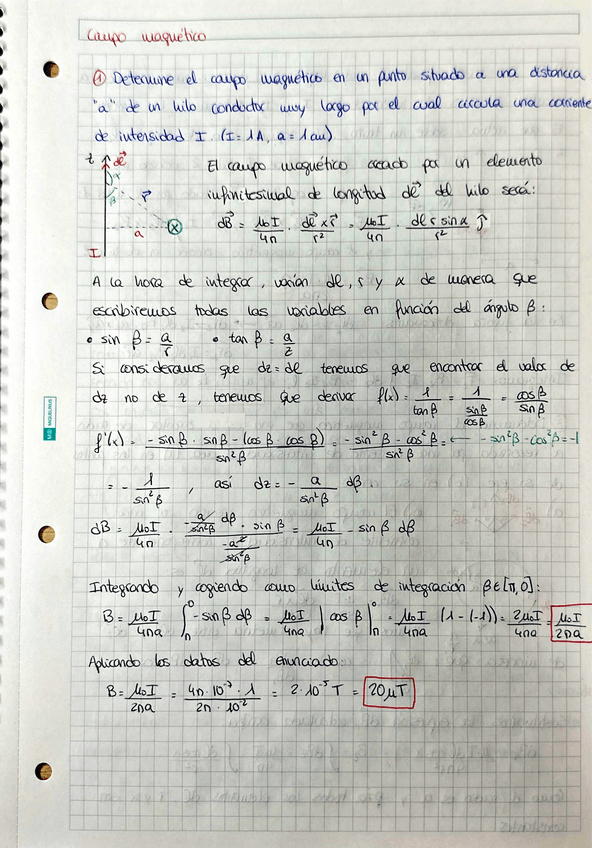 Campo magnético
① Determine el campo magnético en un punto situado a una distancia
"a" de un hilo conductor muy largo por el cual circula una corriente
de intensidad I. (I = 1A, a = 1cm)
z dl⃗
α
β r⃗
a ⊗
I
El campo magnético creado por un elemento
infinitesimal de longitud dl⃗ del hilo será:
dB⃗ = μ₀I/4π · dl⃗ x r⃗/r² = μ₀I/4π · dl r sinα/r² ĵ
A la hora de integrar, varían dl, r y α de manera que
escribiremos todas las variables en función del ángulo β:
• sin β = a/r • tan β = a/z
Si consideramos que dz = dl tenemos que encontrar el valor de
dz no de z, tenemos que derivar f(x) = 1/tan β = 1/(sin β/cos β) = cos β/sin β
f'(x) = (-sin β · sin β - (cos β · cos β))/sin² β = (-sin² β - cos² β)/sin² β = ← -sin² β - cos² β = -1
= - 1/sin² β , así dz = - a/sin² β dβ
dB = μ₀I/4π · (-a/sin² β dβ · sin β)/(-a²/sin² β) = μ₀I/4π - sin β dβ
Integrando y cogiendo como límites de integración β∈[π,0]:
B = μ₀I/4πa ∫π⁰ -sin β dβ = μ₀I/4πa | cos β |π⁰ = μ₀I/4πa (1 - (-1)) = 2μ₀I/4πa = μ₀I/2πa
Aplicando los datos del enunciado:
B = μ₀I/2πa = 4π·10⁻⁷·1/2π·10⁻² = 2·10⁻⁵ T = 20μT
MIQUELRIUS